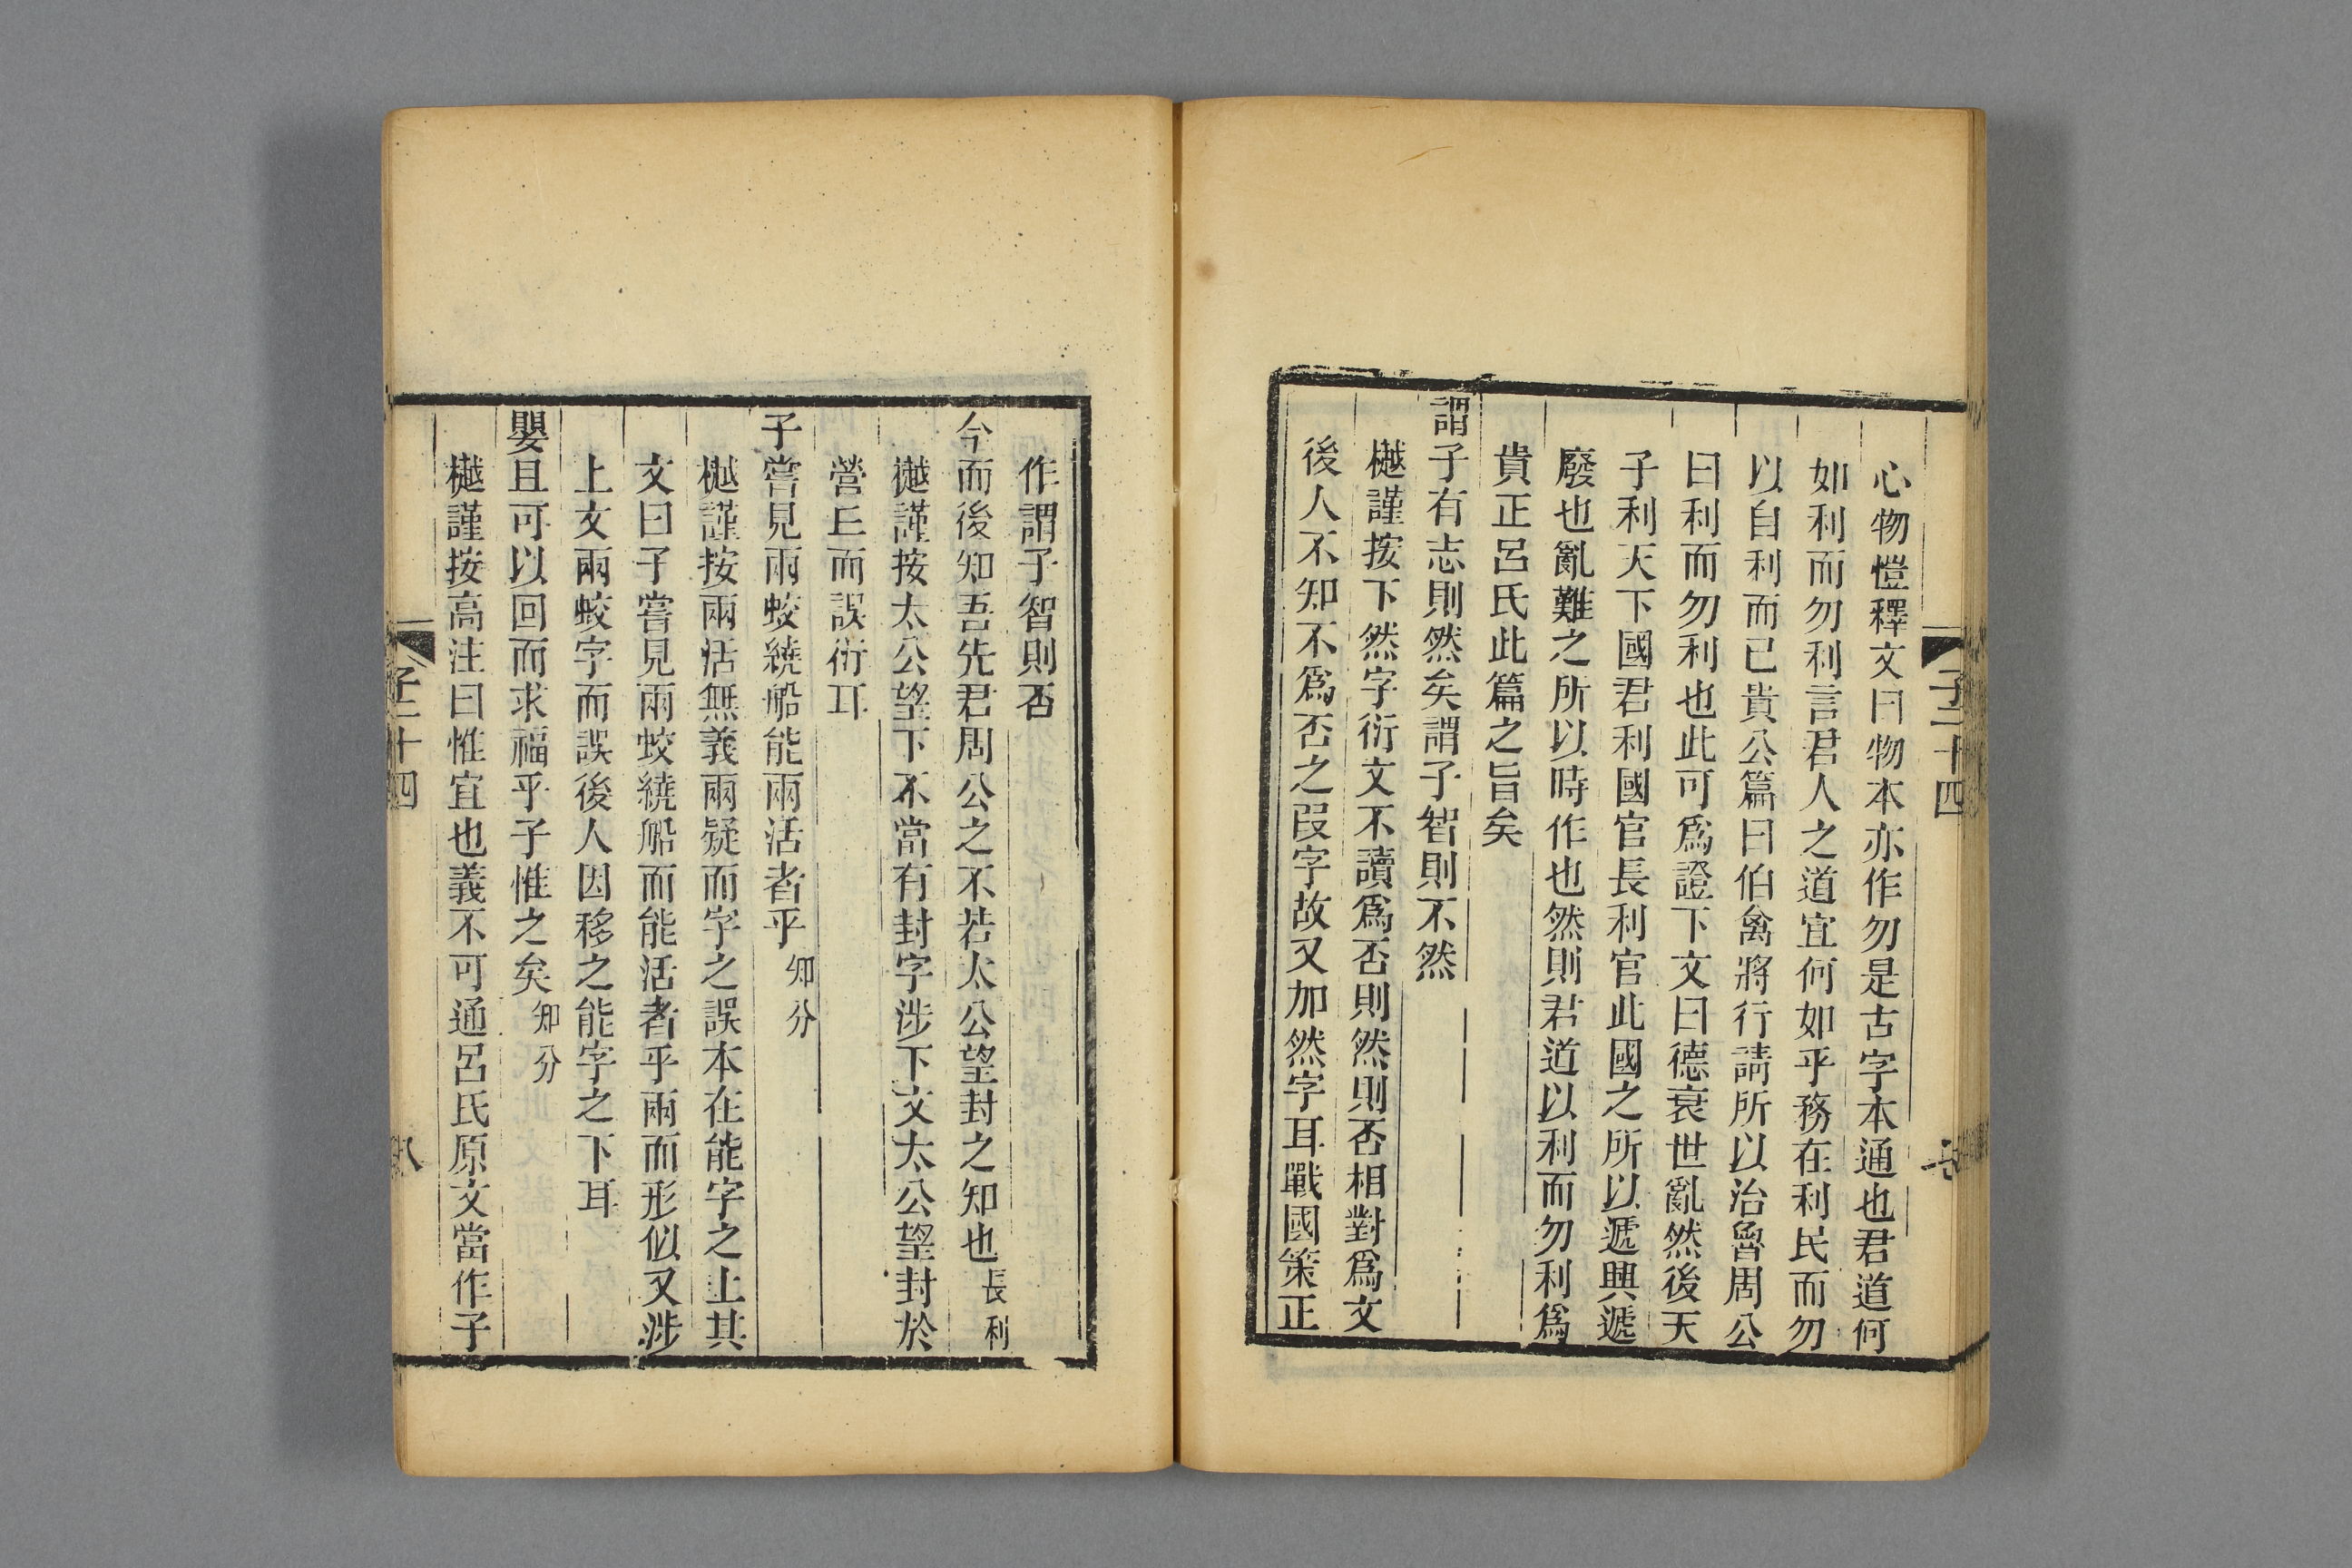 子二十四
心物愷釋文曰物本亦作勿是古字本通也君道何
如利而勿利言君人之道宜何如乎務在利民而勿
以自利而已貴公篇曰伯禽將行請所以治魯周公
曰利而勿利也此可爲證下文曰德衰世亂然後天
子利天下國君利國官長利官此國之所以遞興遞
廢也亂難之所以時作也然則君道以利而勿利爲
貴正呂氏此篇之旨矣
謂子有志則然矣謂子智則不然
樾謹按下然字衍文不讀爲否則然則否相對爲文
後人不知不爲否之叚字故又加然字耳戰國策正
作謂子智則否
今而後知吾先君周公之不若太公望封之知也長利
樾謹按太公望下不當有封字涉下文太公望封於
營丘而誤衍耳
子嘗見兩蛟繞船能兩活者乎知分
樾謹按兩活無義兩疑而字之誤本在能字之上其
文曰子嘗見兩蛟繞船而能活者乎兩而形似又涉
上文兩蛟字而誤後人因移之能字之下耳
嬰且可以回而求福乎子惟之矣知分
樾謹按高注曰惟宜也義不可通呂氏原文當作子
子二十四
八